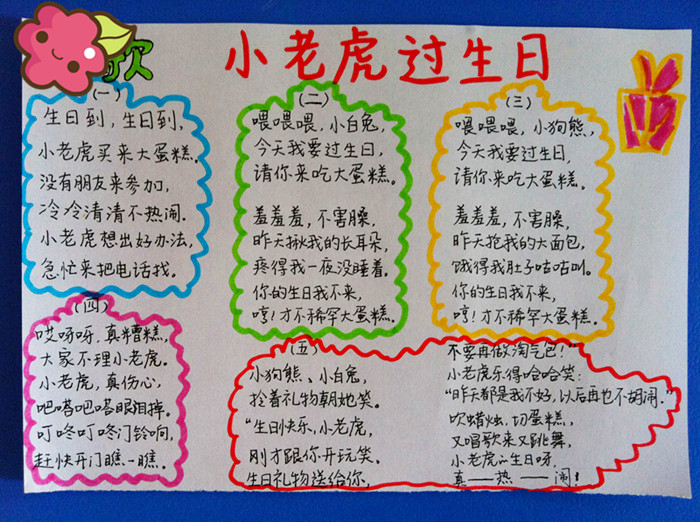 歌 小老虎过生日
(一)
生日到,生日到,
小老虎买来大蛋糕.
没有朋友来参加,
冷冷清清不热闹.
小老虎想出好办法,
急忙来把电话找.
(二)
喂喂喂,小白兔,
今天我要过生日,
请你来吃大蛋糕.
羞羞羞,不害臊,
昨天揪我的长耳朵,
疼得我一夜没睡着.
你的生日我不来,
哼!才不稀罕大蛋糕.
(三)
喂喂喂,小狗熊,
今天我要过生日,
请你来吃大蛋糕.
羞羞羞,不害臊,
昨天抢我的大面包,
饿得我肚子咕咕叫.
你的生日我不来,
哼!才不稀罕大蛋糕.
(四)
哎呀呀,真糟糕,
大家不理小老虎.
小老虎,真伤心,
吧嗒吧嗒眼泪掉.
叮咚叮咚门铃响,
赶快开门瞧一瞧.
(五)
小狗熊、小白兔,
拎着礼物朝她笑.
“生日快乐,小老虎,
刚才跟你开玩笑.
生日礼物送给你,
不要再做淘气包!”
小老虎乐得哈哈笑:
“昨天都是我不好,以后再也不胡闹.”
吹蜡烛,切蛋糕,
又唱歌来又跳舞,
小老虎的生日呀,
真——热——闹!